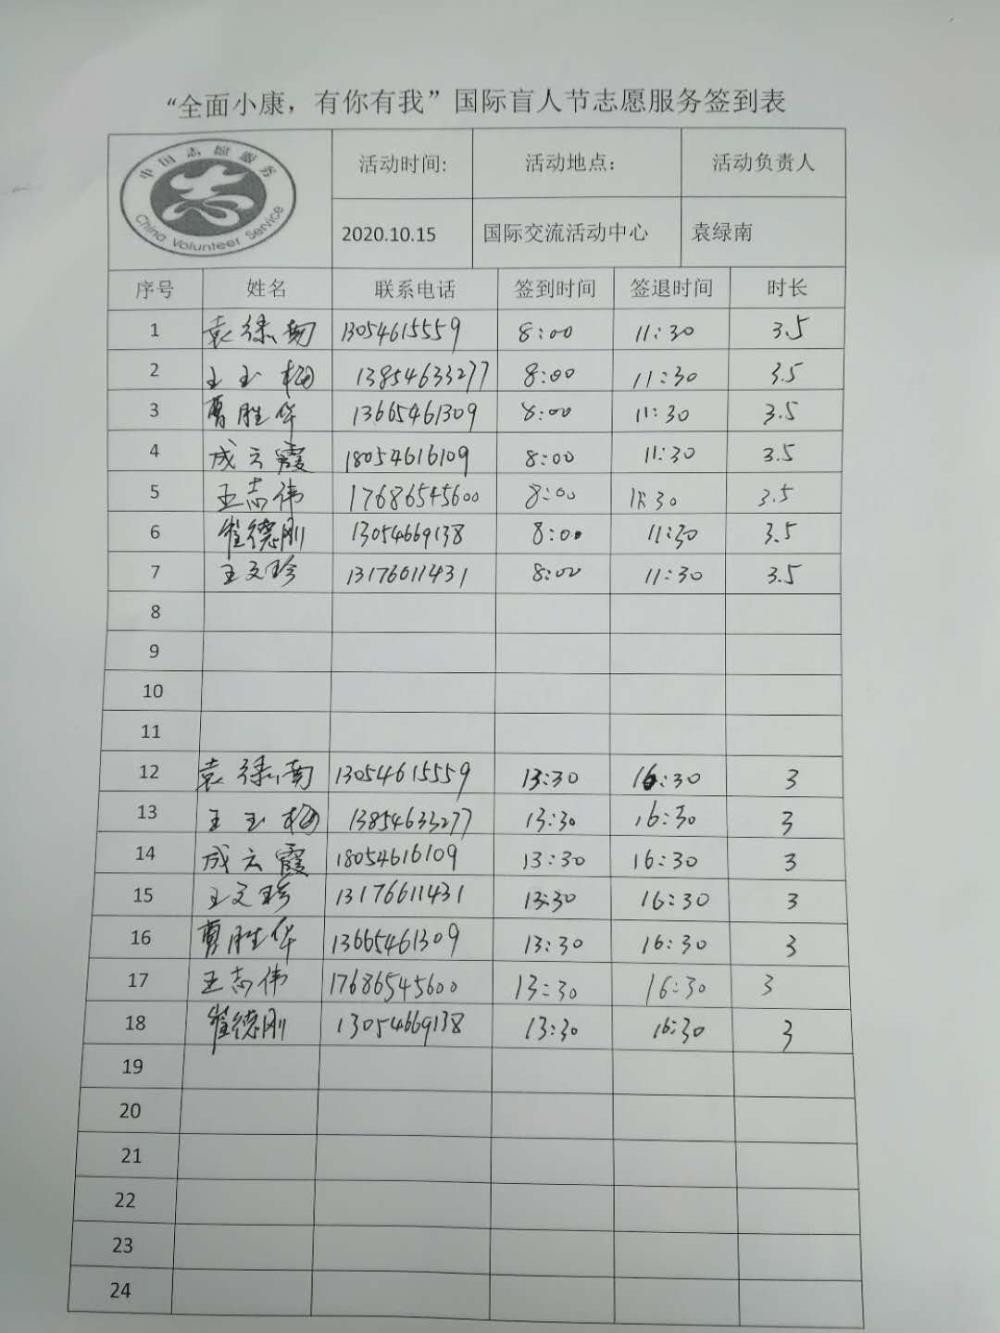 “全面小康，有你有我”国际盲人节志愿服务签到表
中国志愿服务
China Volunteer Service
活动时间: 活动地点： 活动负责人
2020.10.15 国际交流活动中心 袁绿南
序号 姓名 联系电话 签到时间 签退时间 时长
1 袁绿南 13054615559 8:00 11:30 3.5
2 王玉梅 13854633277 8:00 11:30 3.5
3 曹胜华 13665461309 8:00 11:30 3.5
4 成云霞 18054616109 8:00 11:30 3.5
5 王志伟 17686545600 8:00 11:30 3.5
6 崔德刚 13054669138 8:00 11:30 3.5
7 王文珍 13176611431 8:00 11:30 3.5
8
9
10
11
12 袁绿南 13054615559 13:30 16:30 3
13 王玉梅 13854633277 13:30 16:30 3
14 成云霞 18054616109 13:30 16:30 3
15 王文珍 13176611431 13:30 16:30 3
16 曹胜华 13665461309 13:30 16:30 3
17 王志伟 17686545600 13:30 16:30 3
18 崔德刚 13054669138 13:30 16:30 3
19
20
21
22
23
24